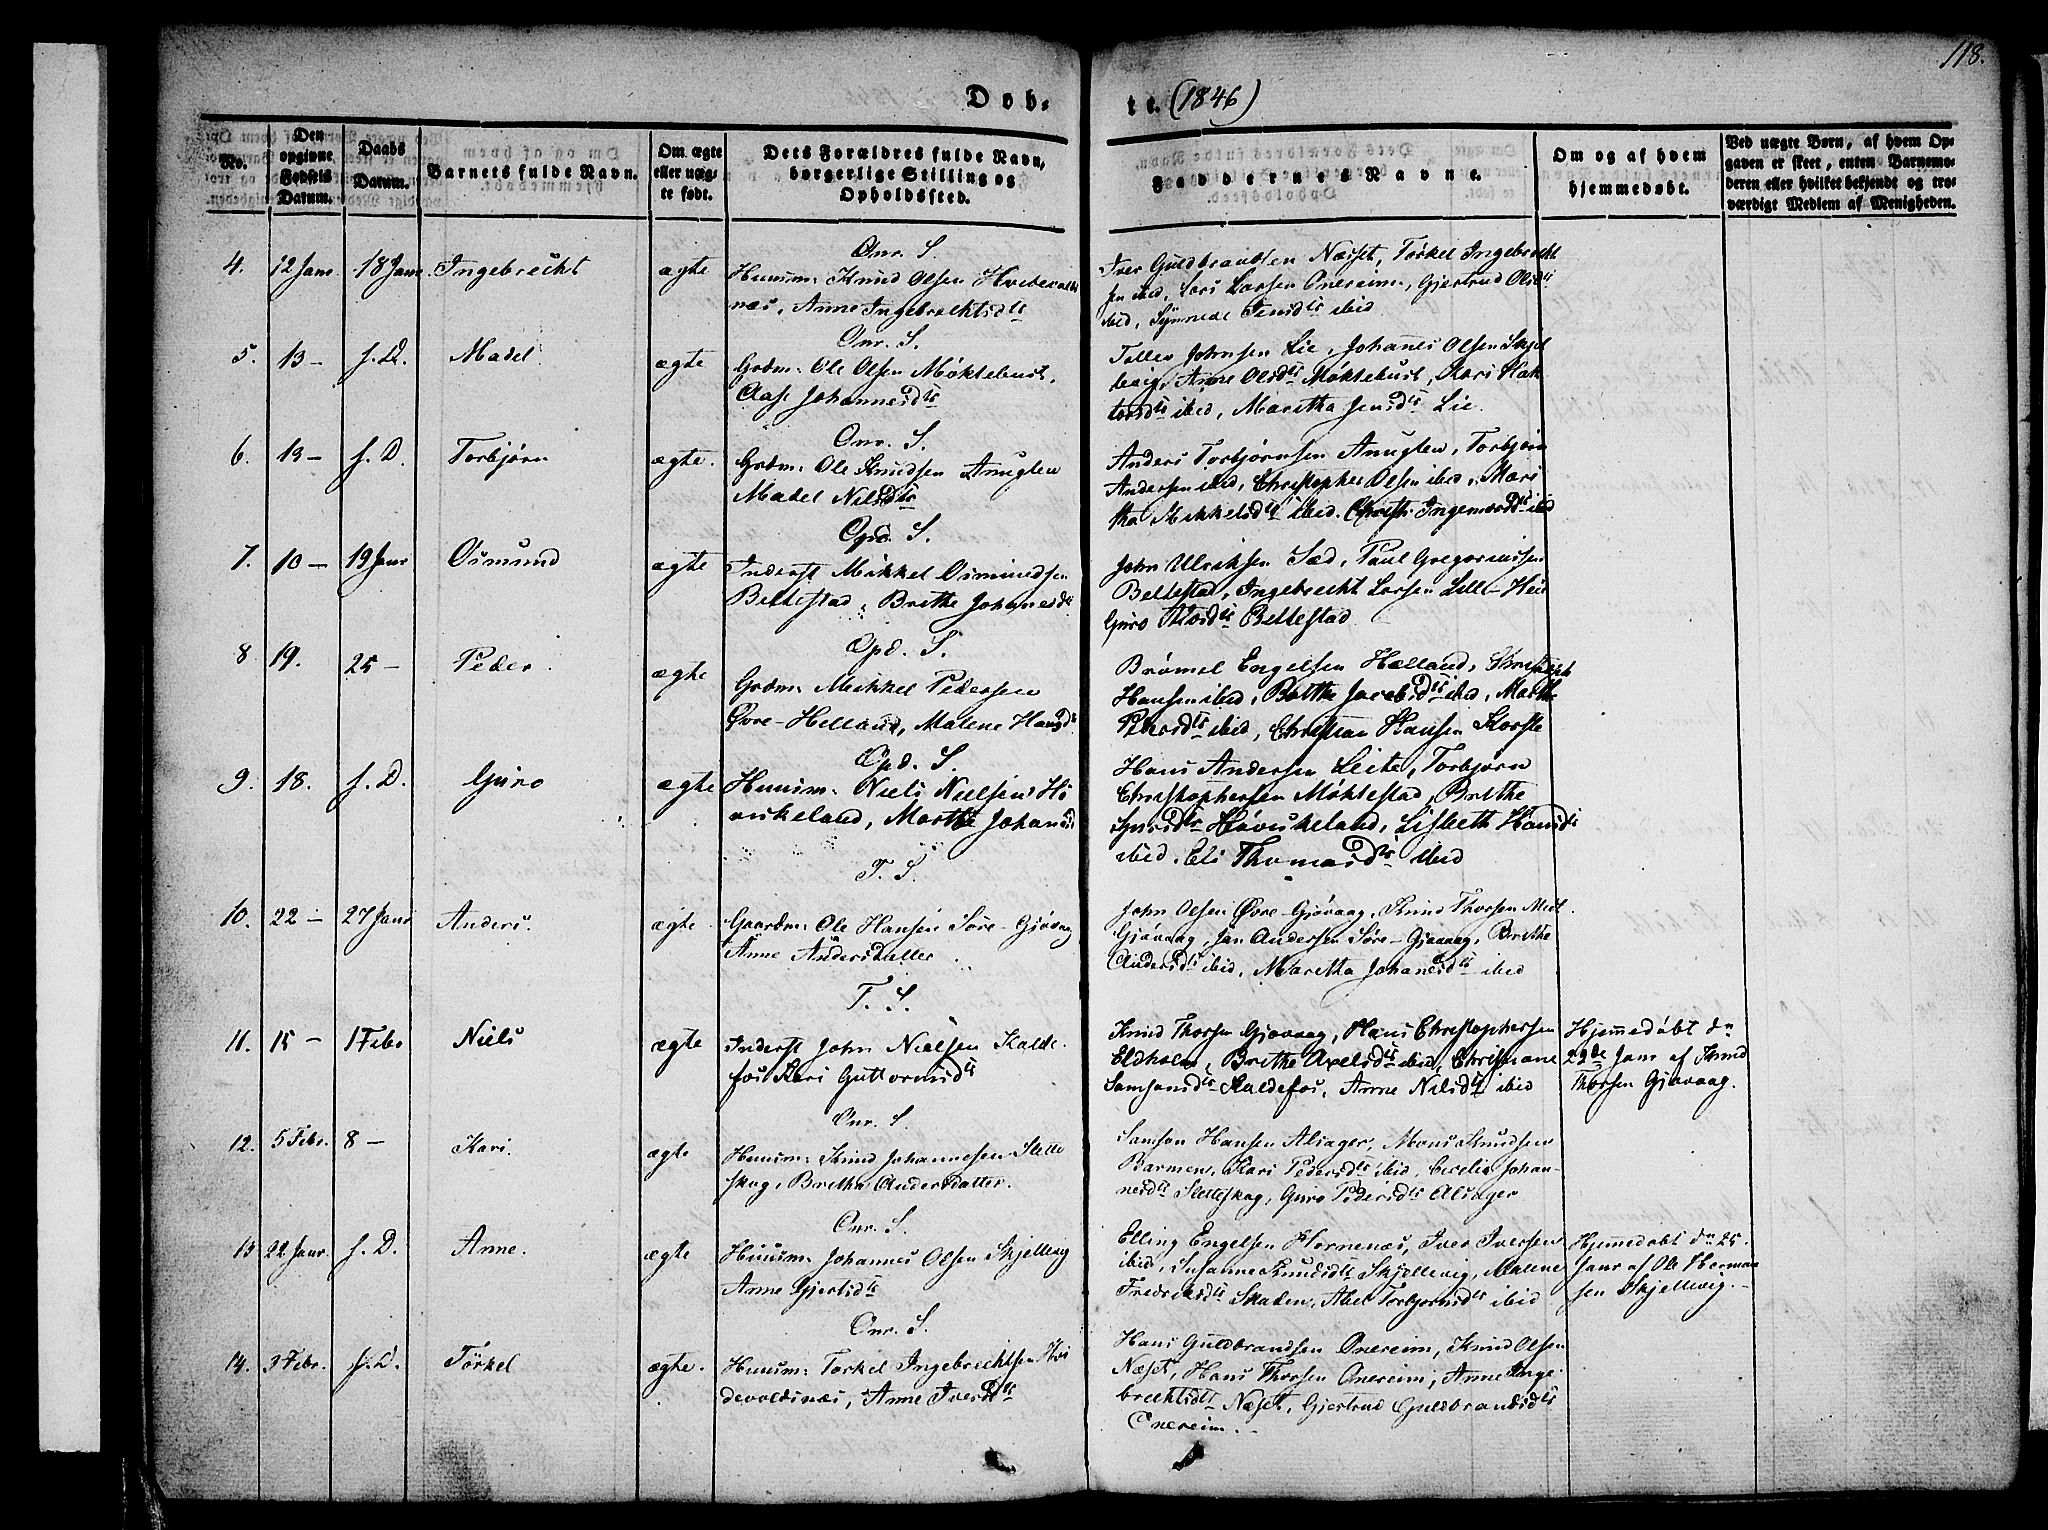 118.
Døb-
te. (1846)
No.
Den opgivne Fødsels Datum.
Daabs Datum.
Barnets fulde Navn.
Om ægte eller uægte født.
Dets Forældres fulde Navn, borgerlige Stilling og Opholdssted.
Faddernes Navne.
Om og af hvem hjemmedøbt.
Ved uægte Børn, af hvem Opgaven er skeet, enten Barnemoderen eller hvilket bekjendt og troværdigt Medlem af Menigheden.
Onr. S.
4. 12 Janr. 18 Janr. Ingebrecht ægte
Huusm: Knud Olsen
næs, Anne Ingebrechtsdtr
Iver Guldbrandsen Næset, Torkel Ingebrecht
sen ibid, Lars Larsen Onereim, Gjertrud Olsdtr
ibid, Synneve Jensdtr ibid
Onr. S.
5. 13 - s. D. Madel ægte
Grdm: Ole Olsen Møklebust,
Aase Johannesdtr
Tollev Johnsen Lie, Johanes Olsen Skjel
levig, Anne Olsdtr Møklebust, Kari Hak
ibid, Maritha Jensdtr Lie.
Onr. S.
6. 13 - s. D. Torbjørn ægte.
Grdm: Ole Knudsen Anuglen
Madel Nilsdtr
Anders Torbjørnsen Anuglen, Torbjørn
Andersen ibid, Christopher Olsen ibid, Mari
tha Mikkelsdtr ibid. Christi Ingemorsdtr ibid
Opd. S.
7. 10 - 19 Janr Osmund ægte
Inderst Mikkel Osmundsen
Beltestad, Brithe Johanesdtr
John Ulriksen Sæd, Paul Gregoriussen
Beltestad, Ingebrecht Larsen Lille-
Guro Beltestad
Opd. S.
8 19. 25 - Peder. ægte
Grdm: Mikkel Pedersen
Øvre-Helland, Malene Hansd
Brømel Engelsen Hælland,
Hansen ibid, Brithe Jacobsdtr ibid, Marthe
Pedersdtr ibid, Christian Hansen
Opd. S.
9. 18. s. D. Guro ægte
Huusm: Niels Nielsen Hø
viskeland, Marthe Johansd
Hans Andersen Leite, Torbjørn
Christophersen Møklestad, Brithe
Høviskeland, Lisbeth Hansdtr
ibid. Eli Thomasdtr ibid
T. S.
10. 22 - 27 Janr Anders. ægte.
Gaardm: Ole Hansen Søre-Gjøvaag
Anne Andersdatter.
John Olsen Øvre-Gjøvaag, Knud Thorsen Mell.
Gjøvaag, Jan Andersen Søre-Gjøvaag, Brithe
Andersdtr ibid, Maritha Johanesdtr ibid
T. S.
11. 15 - 1 Febr Niels ægte
Inderst John Nielsen Kalde-
fos Kari Guttormsdtr
Knud Thorsen Gjøvaag, Hans Christophersen
Eldholm, Brithe Axelsdtr ibid, Christiane
Samsonsdtr Kaldefos, Anne Nilsdtr ibid
Hjemmedøbt dn
22de Janr af Knud
Thorsen Gjøvaag.
Onr. S.
12. 5 Febr. 8 - Kari. ægte
Huusm: Knud Johannesen Slette
skog, Britha Andersdatter.
Samson Hansen Alsager, Mons Knudsen
Barmen, Kari Pedersdtr ibid, Cecilie Johan-
nesdtr Sletteskog, Guro Pedersdtr Alsager
Onr. S.
13 22 Janr. s. D. Anne. ægte
Huusm: Johannes Olsen Skjellevig
Anne Gjertsdtr
Elling Engelsen Hornenæs, Iver Iversen
ibid, Susanne Knudsdtr Skjellevig, Malene
Fredriksdtr Skaden, Abel Torbjørnsdtr ibid
Hjemmedøbt dn 25.
Janr af Ole Herman
sen Skjellevig.-
Onr. S.
14. 3 Febr. s. D. Törkel ægte.
Huusm: Torkel Ingebrechtsen Hvi
devoldsnæs, Anne Iversdtr
Hans Guldbrandsen Onereim, Knud Olsen
Næset, Hans Thorsen Onereim, Anne Inge-
brechtsdtr Næset, Gjertrud Guldbrandsdtr
Onereim.